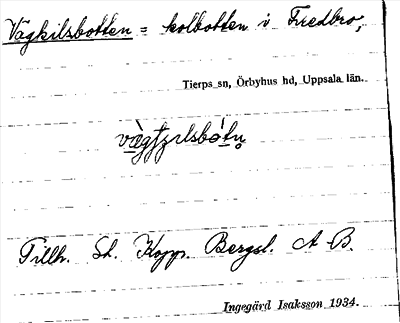 Vägkilsbotten = kolbotten i Fredbro,
Tierps sn, Örbyhus hd, Uppsala län.
Tillh. St. Kopp. Bergsl. A B.
Ingegärd Isaksson 1934.